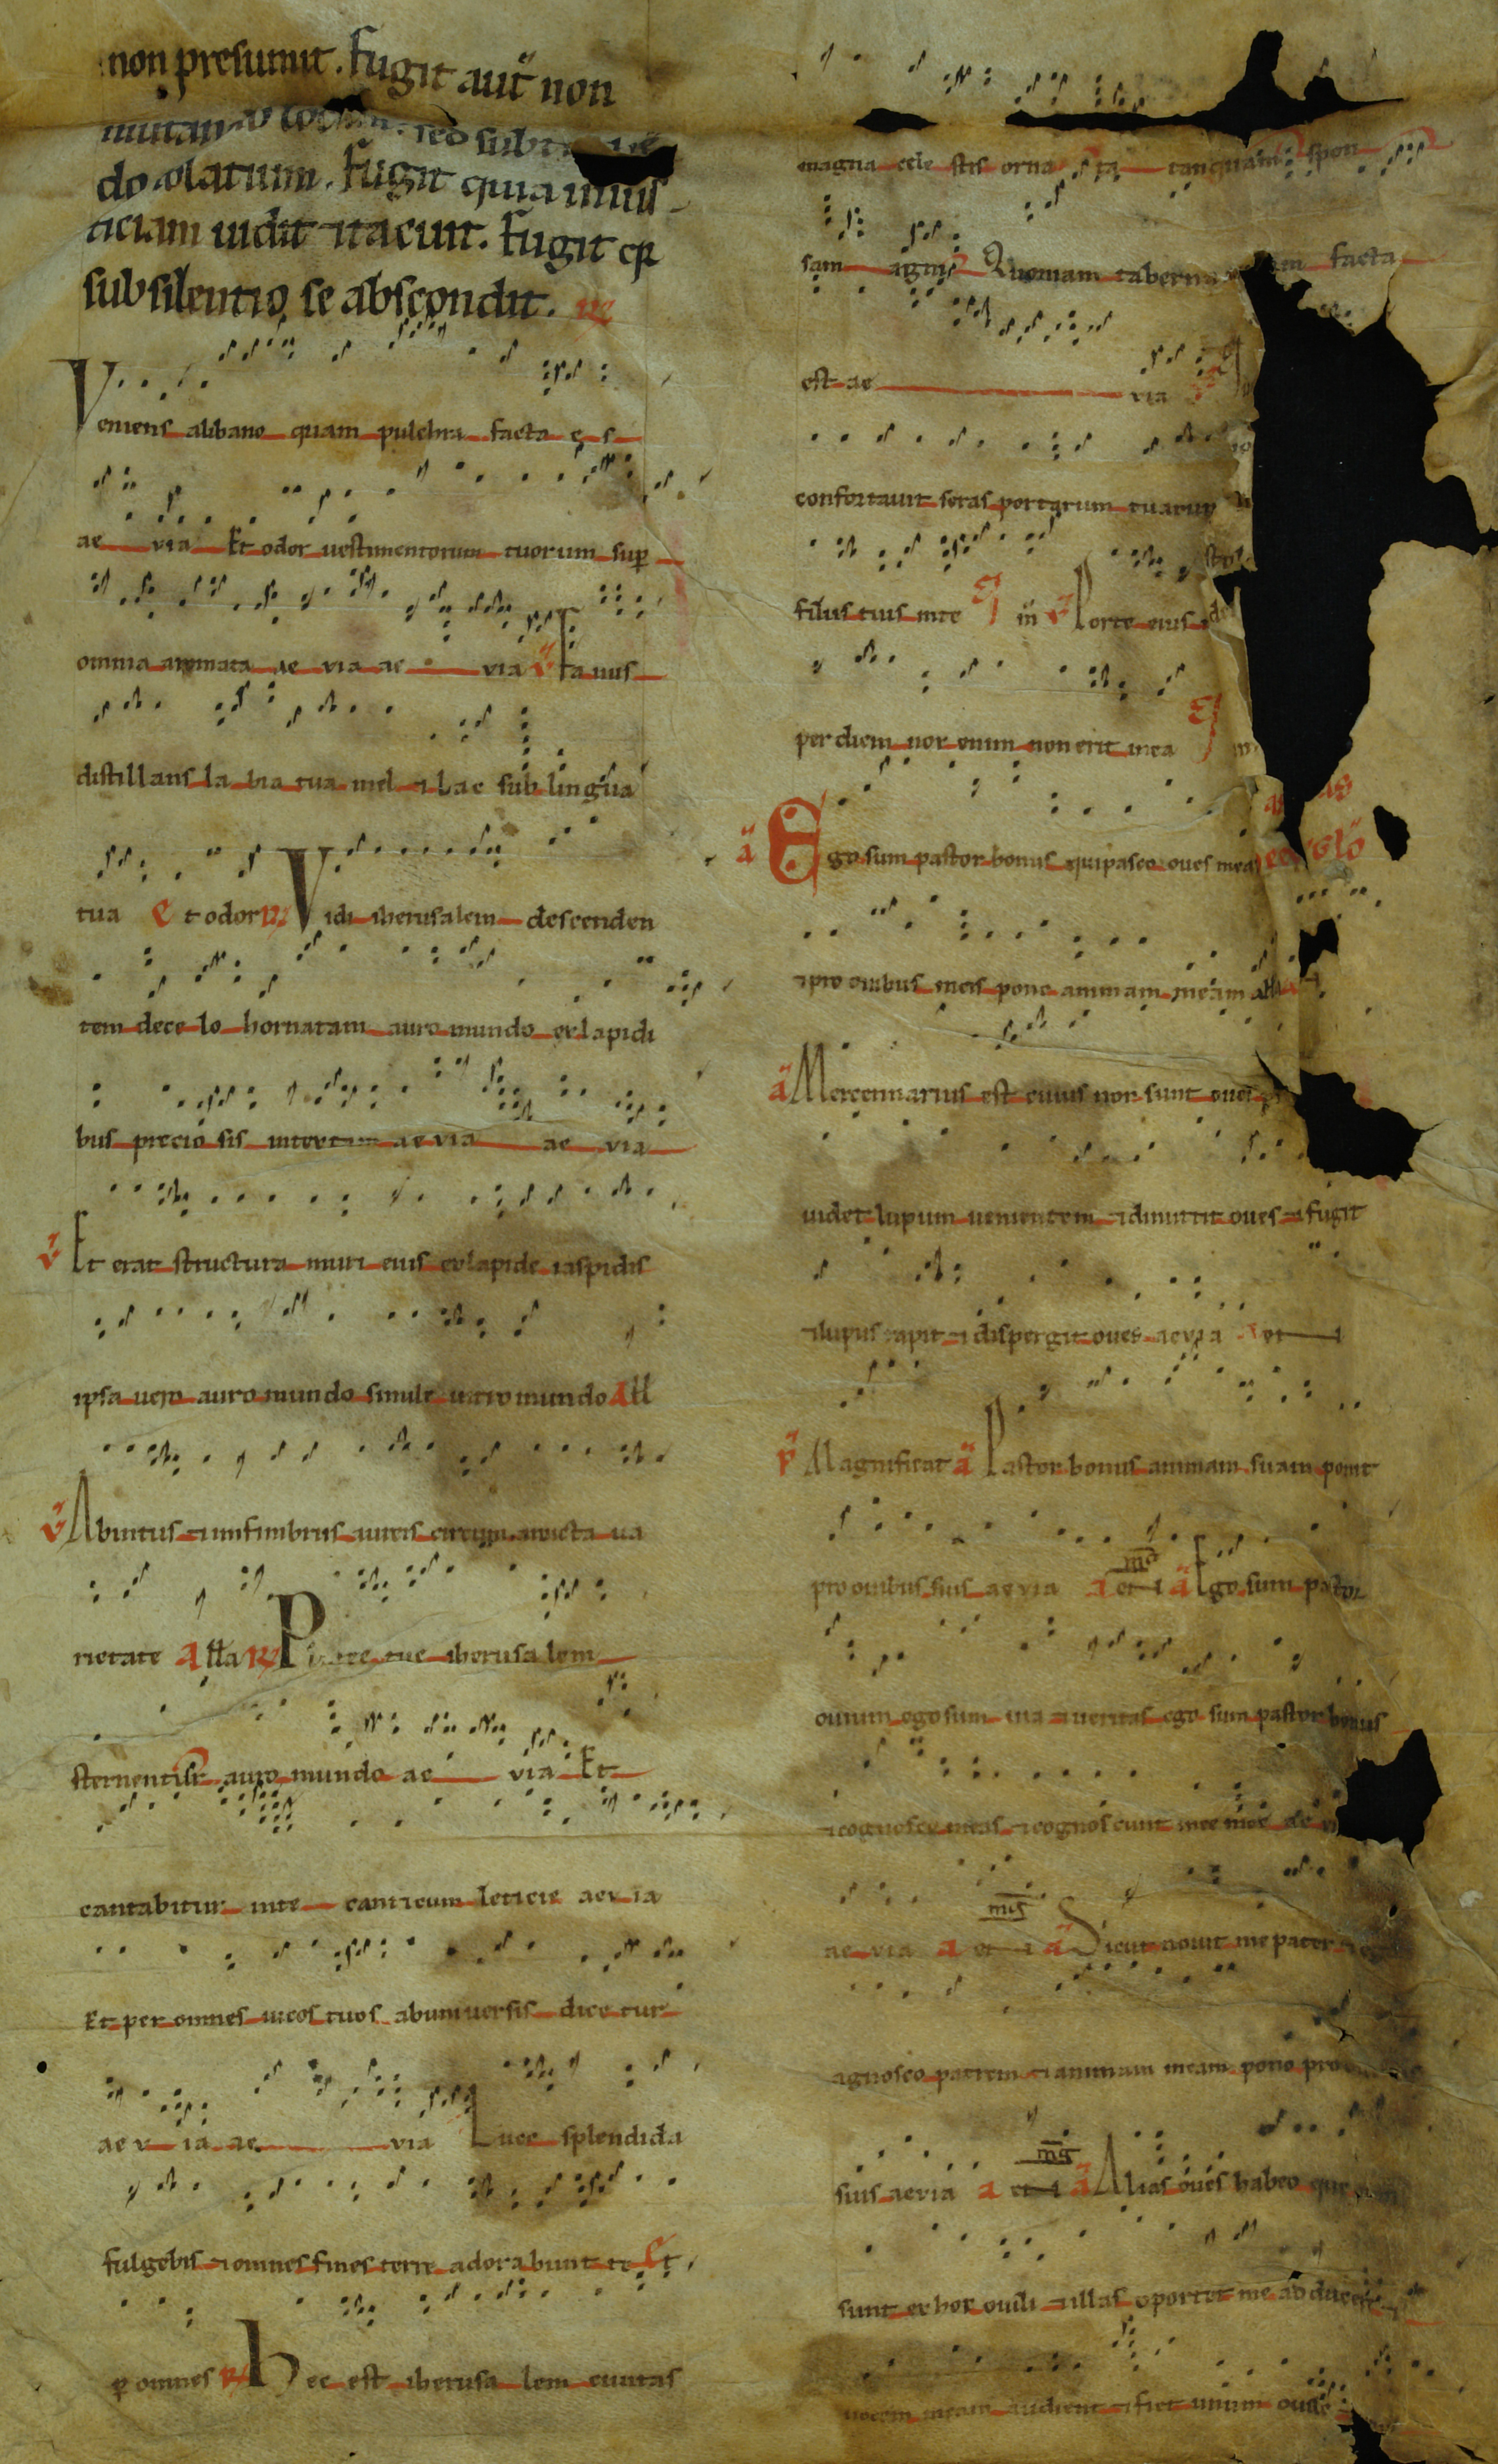 non presumit. Fugit aut non
mutando locum. sed subtra
do solatium. Fugit quia inius
ticiam uidit ⁊ tacuit. Fugit qr
sub silentio se abscondit.
Veniens alibano quam pulchra facta es
ae via Et odor uestimentorum tuorum sup
omnia aromata ae via ae via v Fauus
distillans labia tua mel ⁊ lac sub lingua
tua Et odor Vidi iherusalem descenden
tem de celo hornatam auro mundo ex lapidi
bus preciosis intextam ae via ae via
v Et erat structura muri eius ex lapide iaspidis
ipsa uero auro mundo simile uitro mundo All
v Abintus ⁊ in fimbriis aureis circum amicta ua
rietate Alla Platee tue iherusalem
sternentur auro mundo ae via Et
cantabitur inte canticum leticie aevia
Et per omnes uicos tuos abuniuersis dicetur
aevia ae via Luce splendida
fulgebis ⁊ omnes fines terre adorabunt te Et
p omnes Hec est iherusalem ciuitas
magna celestis ornata tanquam spon
sam agni Quoniam taberna facta
est ae via
confortauit seras portarum tuarum
filius tuis inte in v Porte eius
per diem nox enim non erit inea
a Ego sum pastor bonus qui pasco oues meas
⁊ pro ouibus meis pono animam meam alla
a Mercennarius est cuius non sunt oues
uidet lupum uenientem ⁊ dimittit oues ⁊ fugit
⁊ lupus rapit ⁊ dispergit oues aevia
Magnificat a Pastor bonus animam suam ponit
pro ouibus suis aevia a Ego sum pastor
ouium ego sum uia ⁊ ueritas ego sum pastor bonus
⁊ cognosco meas ⁊ cognoscunt me mee ae
ae via a a Sicut nouit me pater
agnosco patrem ⁊ animam meam pono pro
suis aevia a a Alias oues habeo que
sunt ex hoc ouili ⁊ illas oportet me adducere
uocem meam audient ⁊ fiet unum ouile